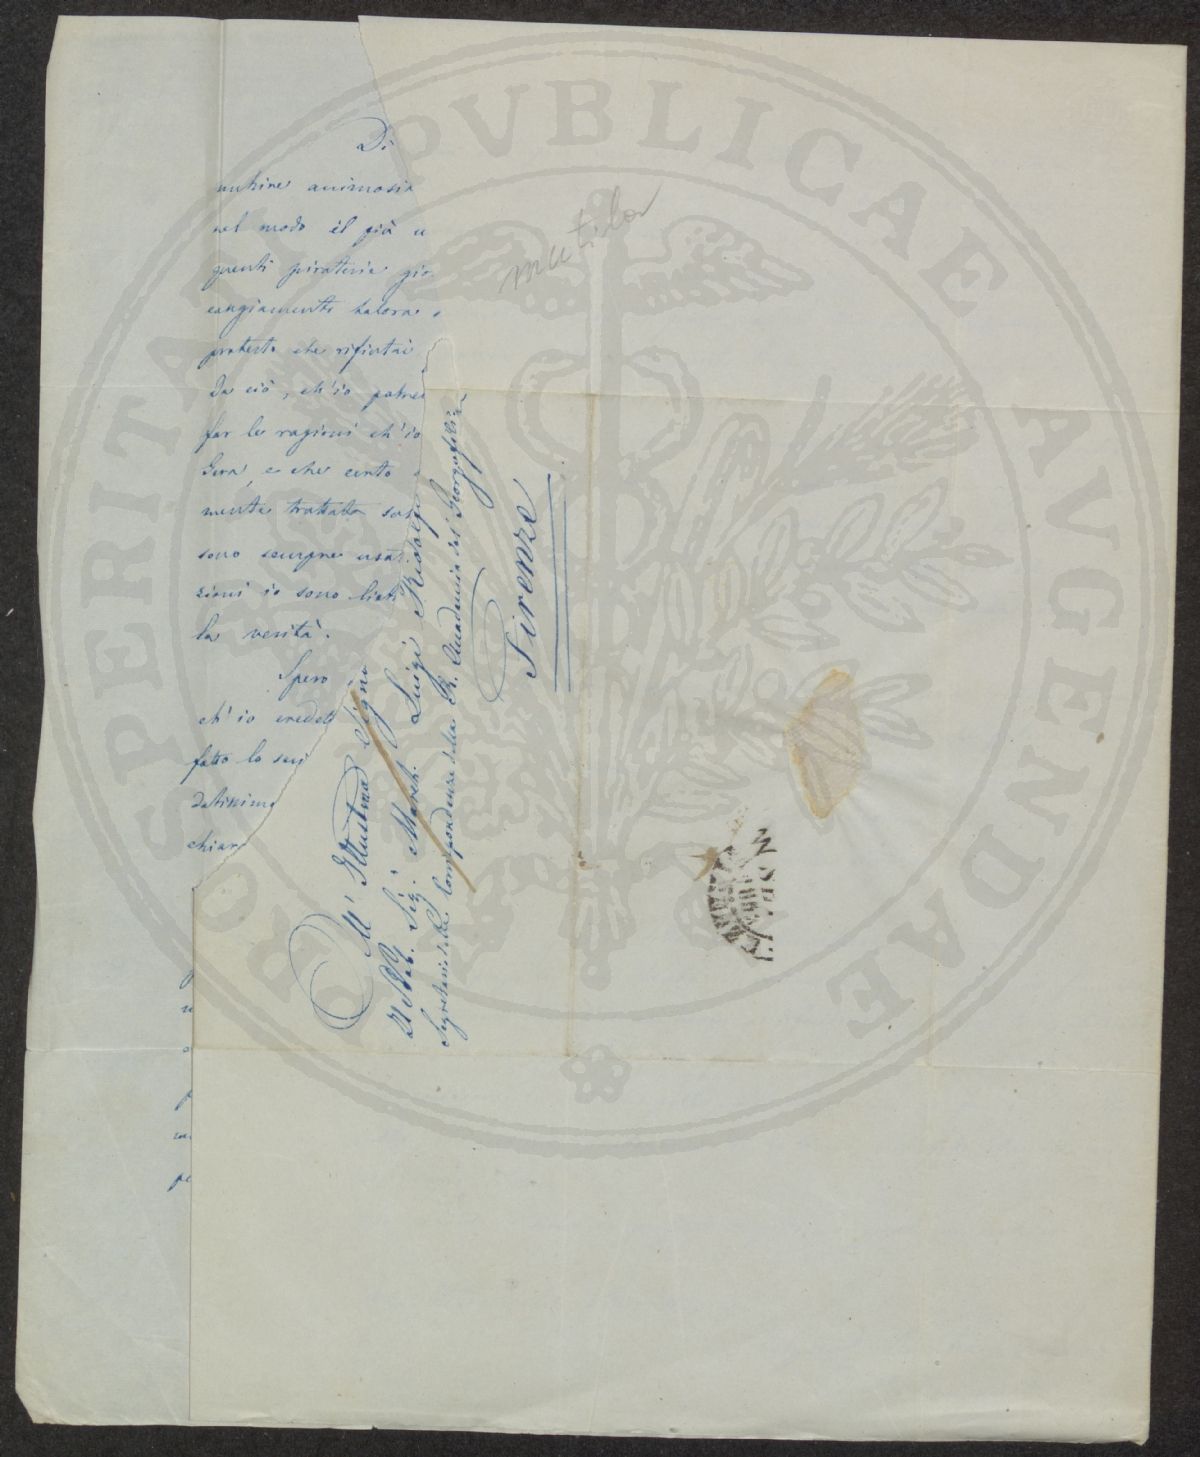 Di
nutrire animosia
nel modo il più u
quenti piraterie gio
cangiamenti talora
protesta che rifiutai
Da ciò, ch'io potrei
far le ragioni ch'io
sera, e che certo
mente trattato sos
sono sempre usat
zioni io sono lieto
la verità.
Spero
ch'io credet
fatto lo scri
datissimo
chiar
pe
mutilo
All' Illustrmo Signo
Il Nob. Sig. March. Luigi Ridolfi
Segretario delle Corrispondenze della R. Accademia dei Georgofili in
Firenze
PROSPERITATI PVBLICAE AVGENDAE